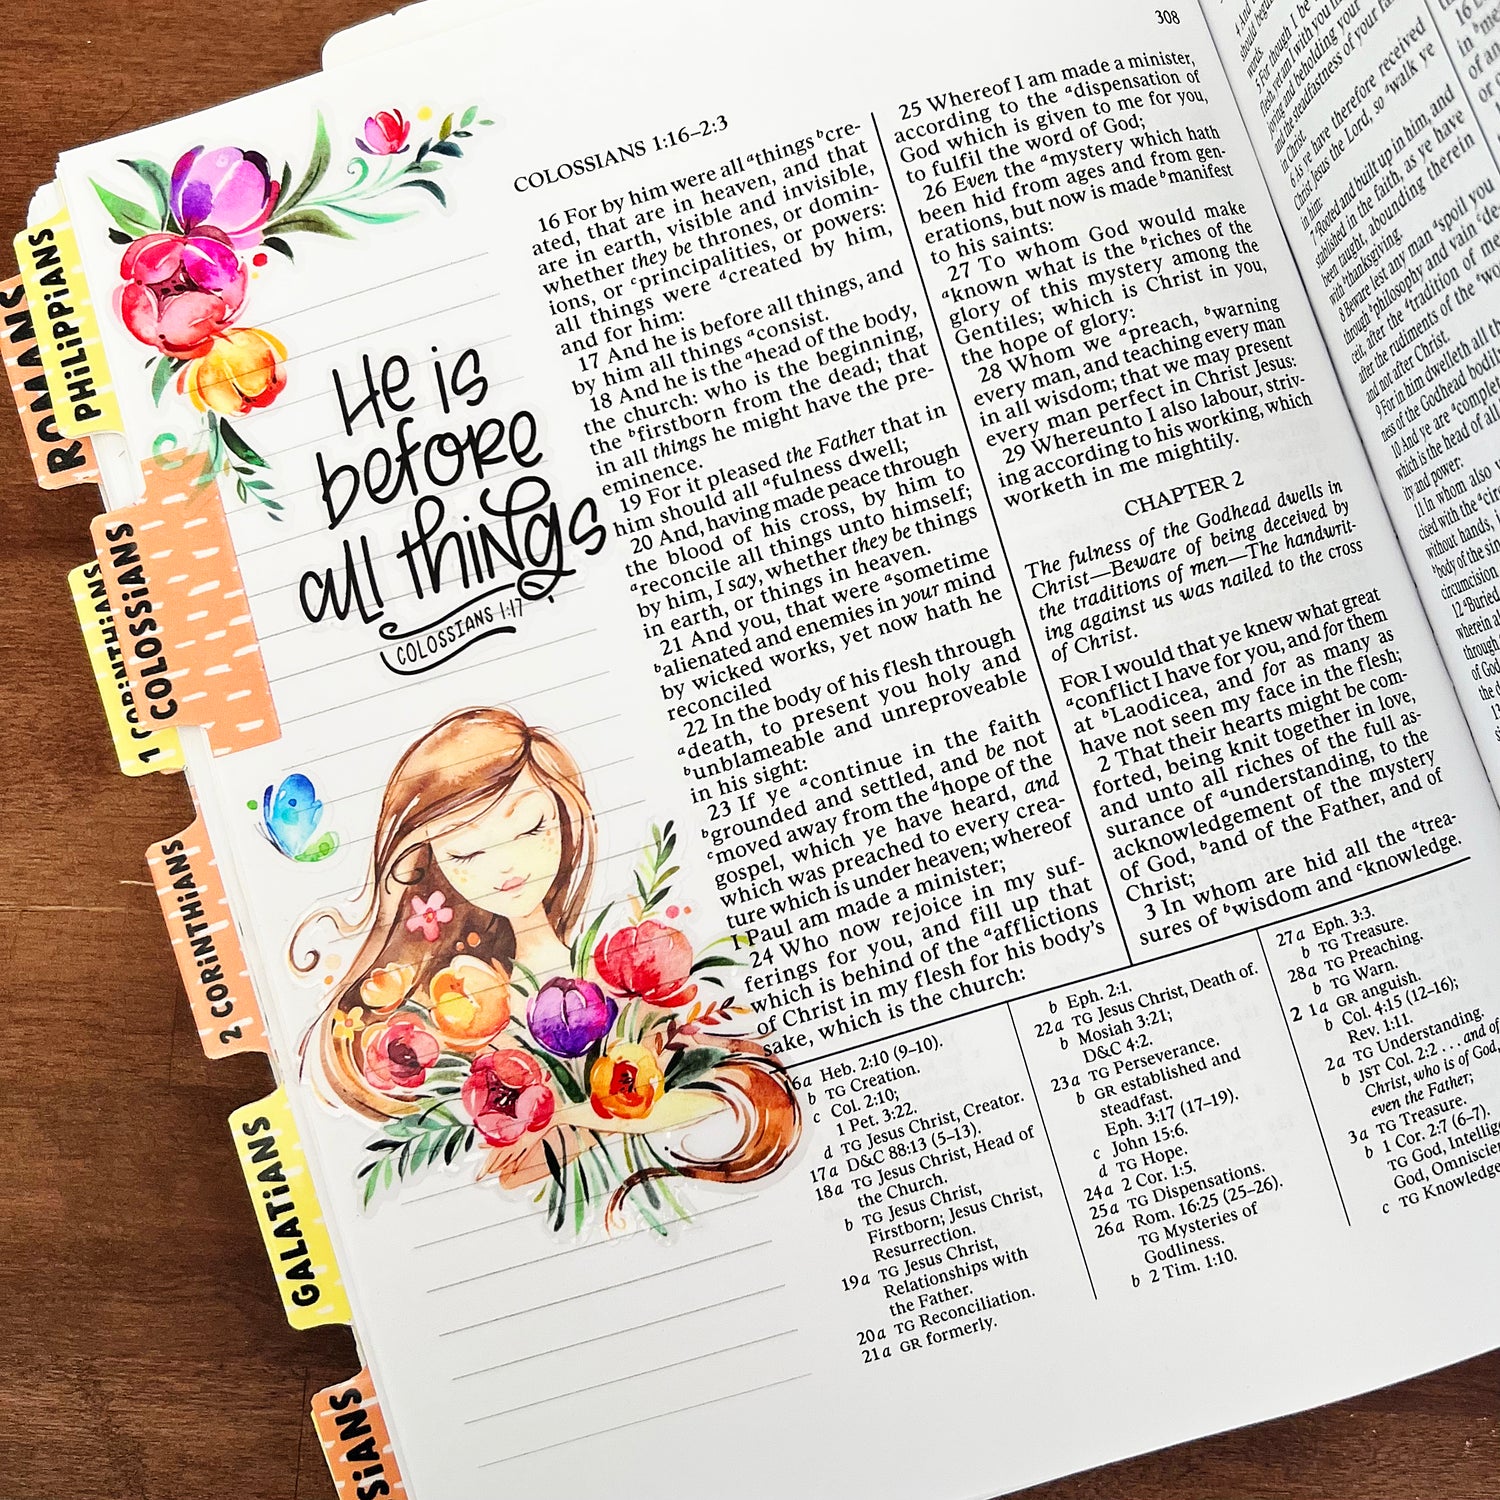 308
COLOSSIANS 1:16–2:3
ROMANS
PHiLiPPiANS
1 CORiNTHiANS
COLOSSiANS
2 CORiNTHiANS
GALATiANS
SiANS
He is
before
all things
COLOSSIANS 1:17
16 For by him were all ᵃthings ᵇcre-
ated, that are in heaven, and that
are in earth, visible and invisible,
whether they be thrones, or domin-
ions, or ᶜprincipalities, or powers:
all things were ᵈcreated by him,
and for him:
17 And he is before all things, and
by him all things ᵃconsist.
18 And he is the ᵃhead of the body,
the church: who is the beginning,
the ᵇfirstborn from the dead; that
in all things he might have the pre-
eminence.
19 For it pleased the Father that in
him should all ᵃfulness dwell;
20 And, having made peace through
the blood of his cross, by him to
ᵃreconcile all things unto himself;
by him, I say, whether they be things
in earth, or things in heaven.
21 And you, that were ᵃsometime
ᵇalienated and enemies in your mind
by wicked works, yet now hath he
reconciled
22 In the body of his flesh through
ᵃdeath, to present you holy and
ᵇunblameable and unreproveable
in his sight:
23 If ye ᵃcontinue in the faith
ᵇgrounded and settled, and be not
ᶜmoved away from the ᵈhope of the
gospel, which ye have heard, and
which was preached to every crea-
ture which is under heaven; whereof
I Paul am made a minister;
24 Who now rejoice in my suf-
ferings for you, and fill up that
which is behind of the ᵃafflictions
of Christ in my flesh for his body's
sake, which is the church:
25 Whereof I am made a minister,
according to the ᵃdispensation of
God which is given to me for you,
to fulfil the word of God;
26 Even the ᵃmystery which hath
been hid from ages and from gen-
erations, but now is made ᵇmanifest
to his saints:
27 To whom God would make
ᵃknown what is the ᵇriches of the
glory of this mystery among the
Gentiles; which is Christ in you,
the hope of glory:
28 Whom we ᵃpreach, ᵇwarning
every man, and teaching every man
in all wisdom; that we may present
every man perfect in Christ Jesus:
29 Whereunto I also labour, striv-
ing according to his working, which
worketh in me mightily.
CHAPTER 2
The fulness of the Godhead dwells in
Christ—Beware of being deceived by
the traditions of men—The handwrit-
ing against us was nailed to the cross
of Christ.
FOR I would that ye knew what great
ᵃconflict I have for you, and for them
at ᵇLaodicea, and for as many as
have not seen my face in the flesh;
2 That their hearts might be com-
forted, being knit together in love,
and unto all riches of the full as-
surance of ᵃunderstanding, to the
acknowledgement of the mystery
of God, ᵇand of the Father, and of
Christ;
3 In whom are hid all the ᵃtrea-
sures of ᵇwisdom and ᶜknowledge.
16a Heb. 2:10 (9–10).
b TG Creation.
c Col. 2:10;
1 Pet. 3:22.
d TG Jesus Christ, Creator.
17a D&C 88:13 (5–13).
18a TG Jesus Christ, Head of
the Church.
b TG Jesus Christ,
Firstborn; Jesus Christ,
Resurrection.
19a TG Jesus Christ,
Relationships with
the Father.
20a TG Reconciliation.
21a GR formerly.
b Eph. 2:1.
22a TG Jesus Christ, Death of.
b Mosiah 3:21;
D&C 4:2.
23a TG Perseverance.
b GR established and
steadfast.
Eph. 3:17 (17–19).
c John 15:6.
d TG Hope.
24a 2 Cor. 1:5.
25a TG Dispensations.
26a Rom. 16:25 (25–26).
TG Mysteries of
Godliness.
b 2 Tim. 1:10.
27a Eph. 3:3.
b TG Treasure.
28a TG Preaching.
b TG Warn.
2 1a GR anguish.
b Col. 4:15 (12–16);
Rev. 1:11.
2a TG Understanding.
b JST Col. 2:2 . . . and of
Christ, who is of God,
even the Father;
3a TG Treasure.
b 1 Cor. 2:7 (6–7).
TG God, Intellig
God, Omniscien
c TG Knowledge
5 For though I be
flesh, yet am I with you
joying and beholding your
and the steadfastness of your fa
in Christ.
6 As ye have therefore received
Christ Jesus the Lord, so ᵃwalk ye
in him:
7 ᵃRooted and built up in him, and
stablished in the faith, as ye have
been taught, abounding therein
with ᵇthanksgiving.
8 Beware lest any man ᵃspoil you
through ᵇphilosophy and vain ᶜde-
ceit, after the ᵈtradition of men,
after the rudiments of the
and not after Christ.
9 For in him dwelleth all the
ness of the Godhead bodil
10 And ye are ᵃcomplet
which is the head of all
ity and power:
11 In whom also y
cised with the ᵃcir
without hands, i
ᵇbody of the sin
circumcision
12 ᵃBuried
wherein al
through
of God